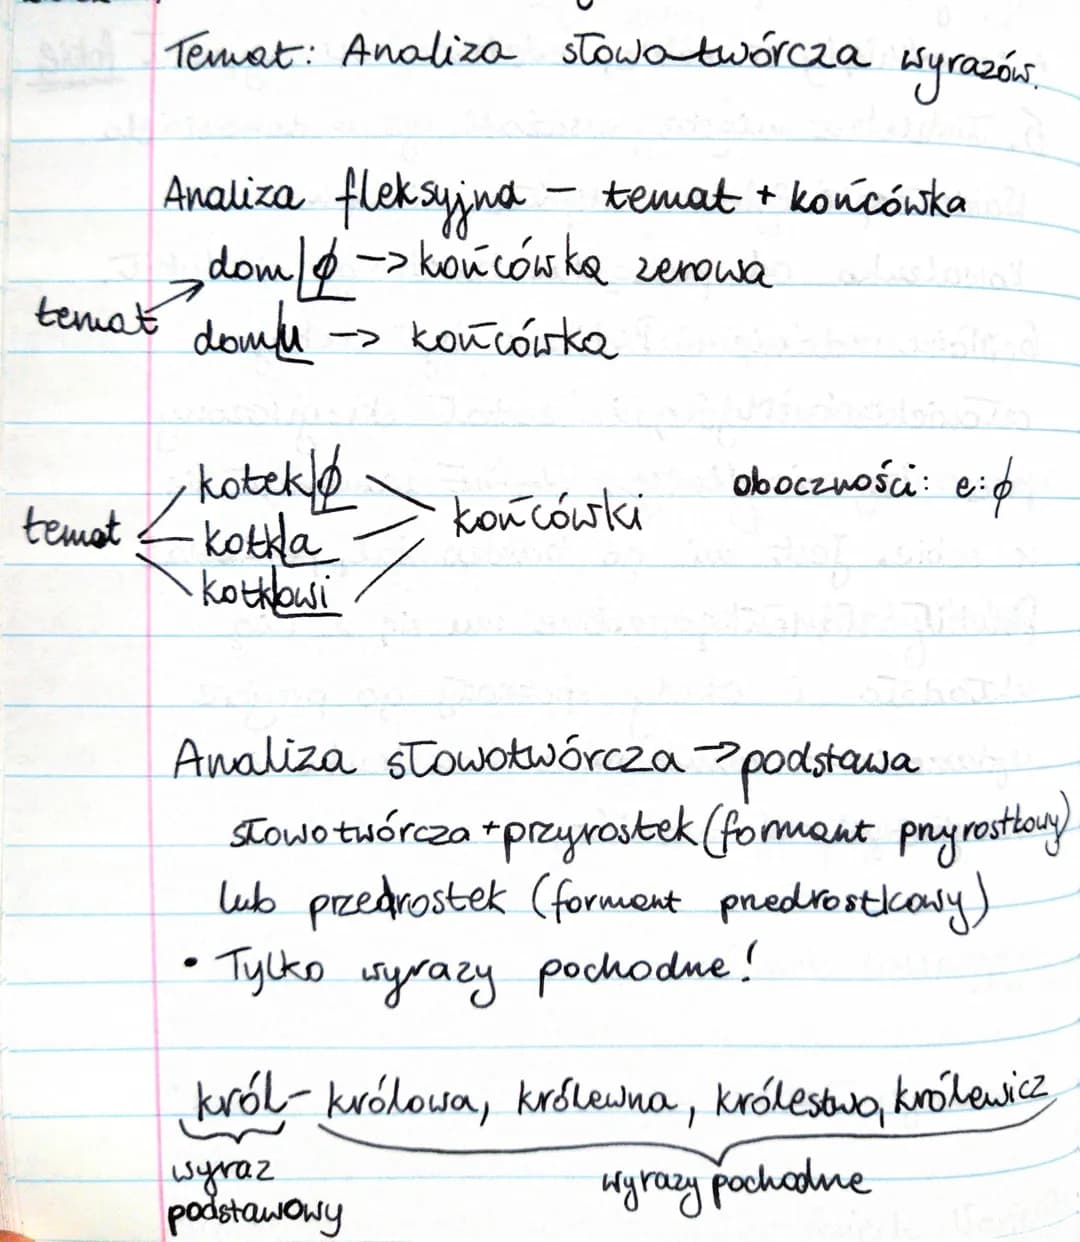 Temat: Analiza słowotwórcza wyrazów.
Analiza fleksyjna - temat + końcówka
dom|ø -> końcówka zerowa
temat
dom|u -> końcówka
kotek|ø
temat kotk|a końcówki oboczności: e:ø
kotk|owi
Analiza słowotwórcza -> podstawa
słowotwórcza + przyrostek (formant przyrostkowy)
lub przedrostek (formant przedrostkowy)
• Tylko wyrazy pochodne!
król - królowa, królewna, królestwo, królewicz
wyraz wyrazy pochodne
podstawowy